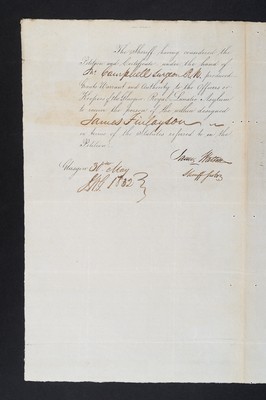 The Sheriff having considered the
Petition and Certificate under the hand of
Dr. Campbell Surgeon R.N.
Grants Warrant and Authority to the Officers or
Keepers of the Glasgow Royal Lunatic Asylum
to receive the person of the within designed
James Finlayson
in terms of the Statutes referred to in the
Petition.
Glasgow 30th May
1832